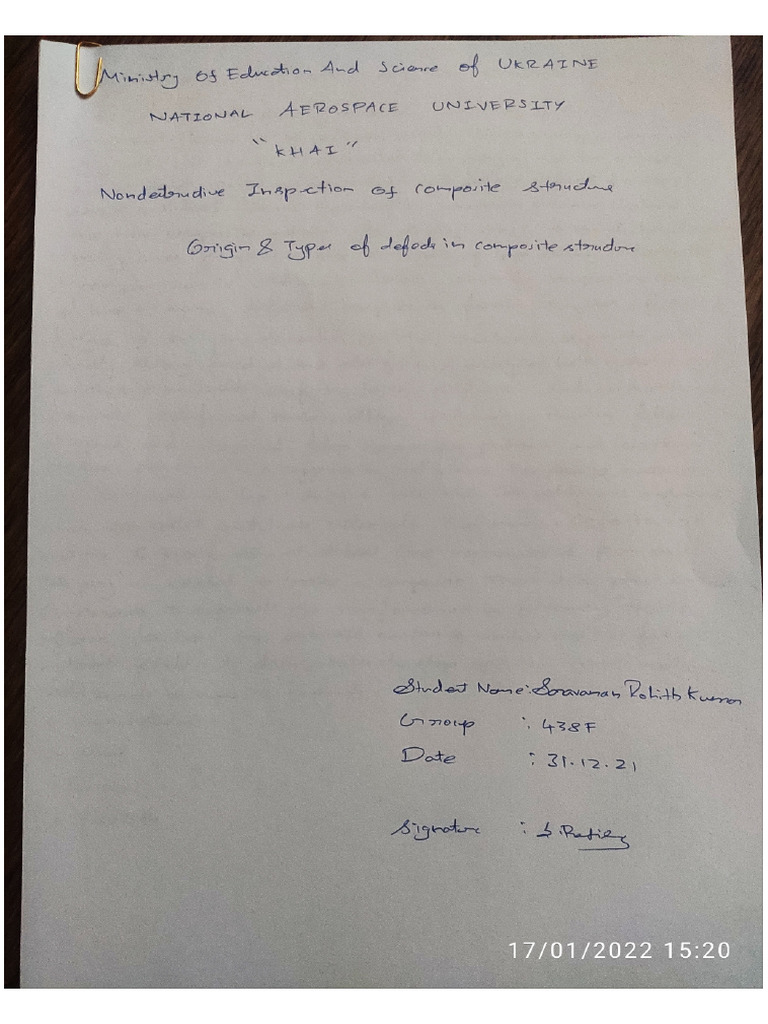 Ministry of Education And Science of UKRAINE
NATIONAL AEROSPACE UNIVERSITY
"KHAI"
Nondestrudive Inspection of composite structure
Origin & Types of defects in composite structure
Student Name: Saravanan Rohith Kumar
Group : 438F
Date : 31.12.21
Signature : S.
17/01/2022 15:20